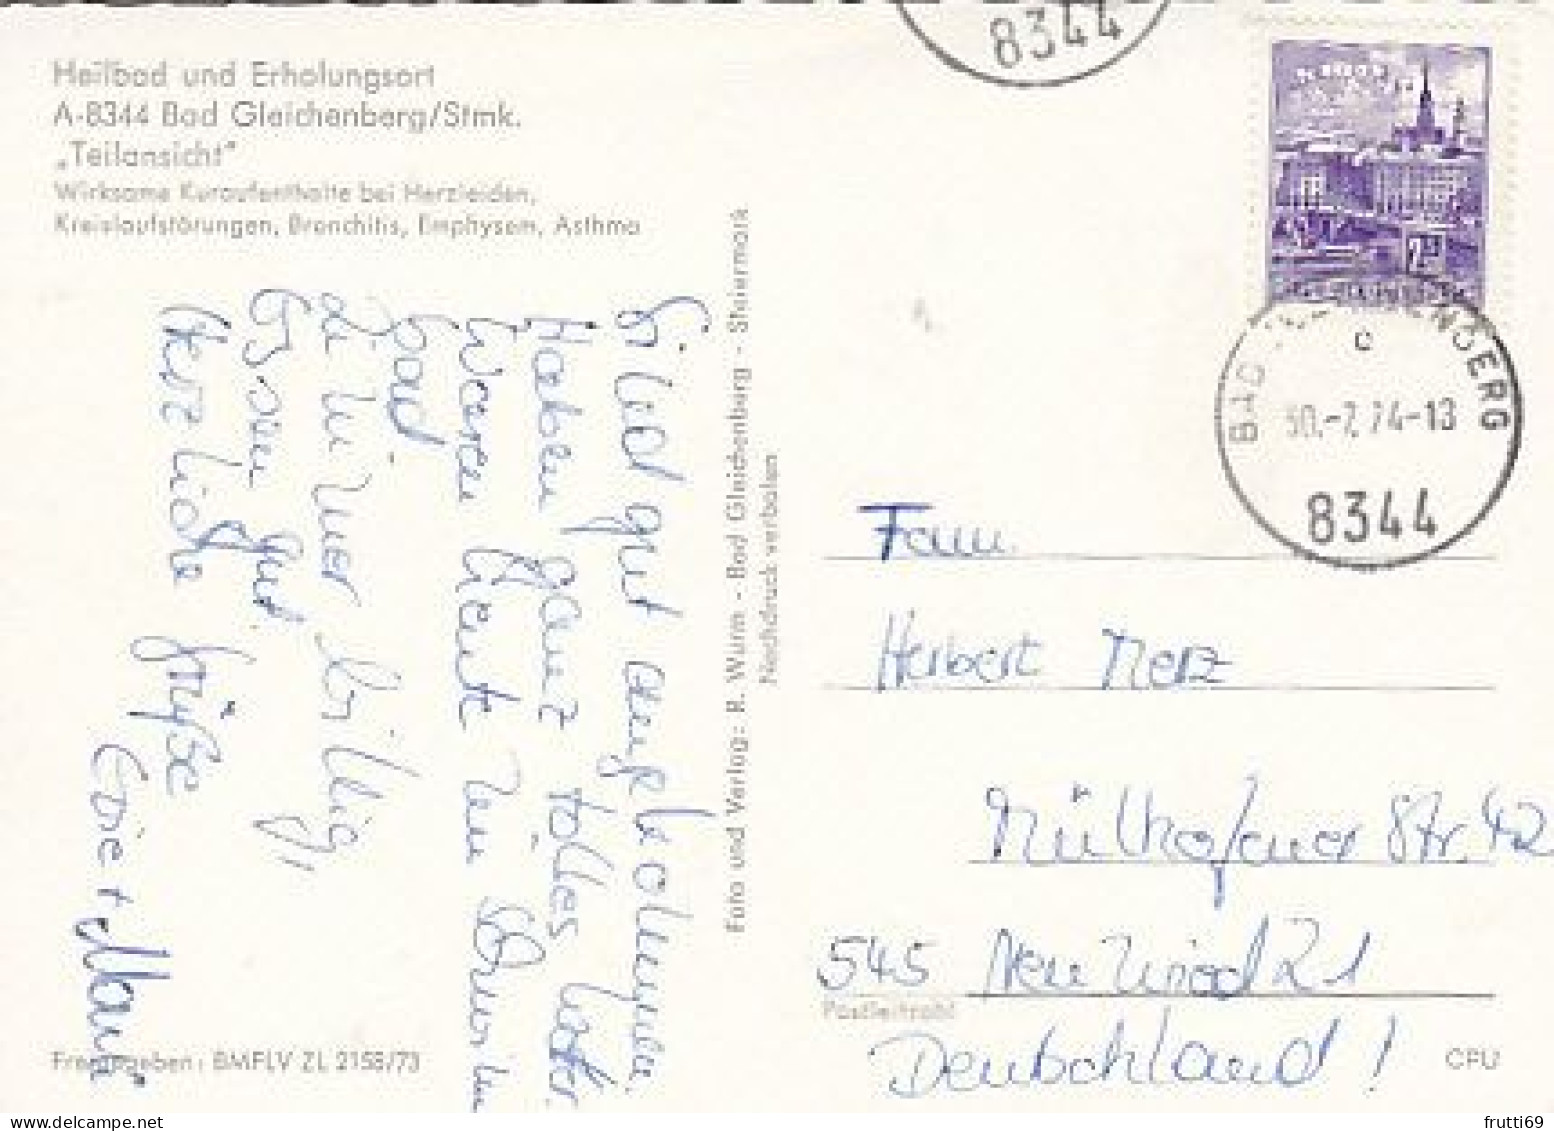 8344
Heilbad und Erholungsort
A-8344 Bad Gleichenberg/Stmk.
„Teilansicht"
Wirksame Kuraufenthalte bei Herzleiden,
Kreislaufstörungen, Bronchitis, Emphysem, Asthma
Sind gut angekommen
Haben ganz tolles Wetter.
Waren heut im Schwimm
bad
der immer
Essen gut.
Herzliche Grüße
Edie + Maria
Foto und Verlag: R. Wurm - Bad Gleichenberg - Steiermark
Nachdruck verboten
BAD GLEICHENBERG
c
30.-7.74-13
8344
Fam.
Herbert Merz
Mülhofener Str. 42
545 Neuwied 21
Postleitzahl
Deutschland!
Freigegeben: BMFLV ZL 2158/73
CFU
frutti69